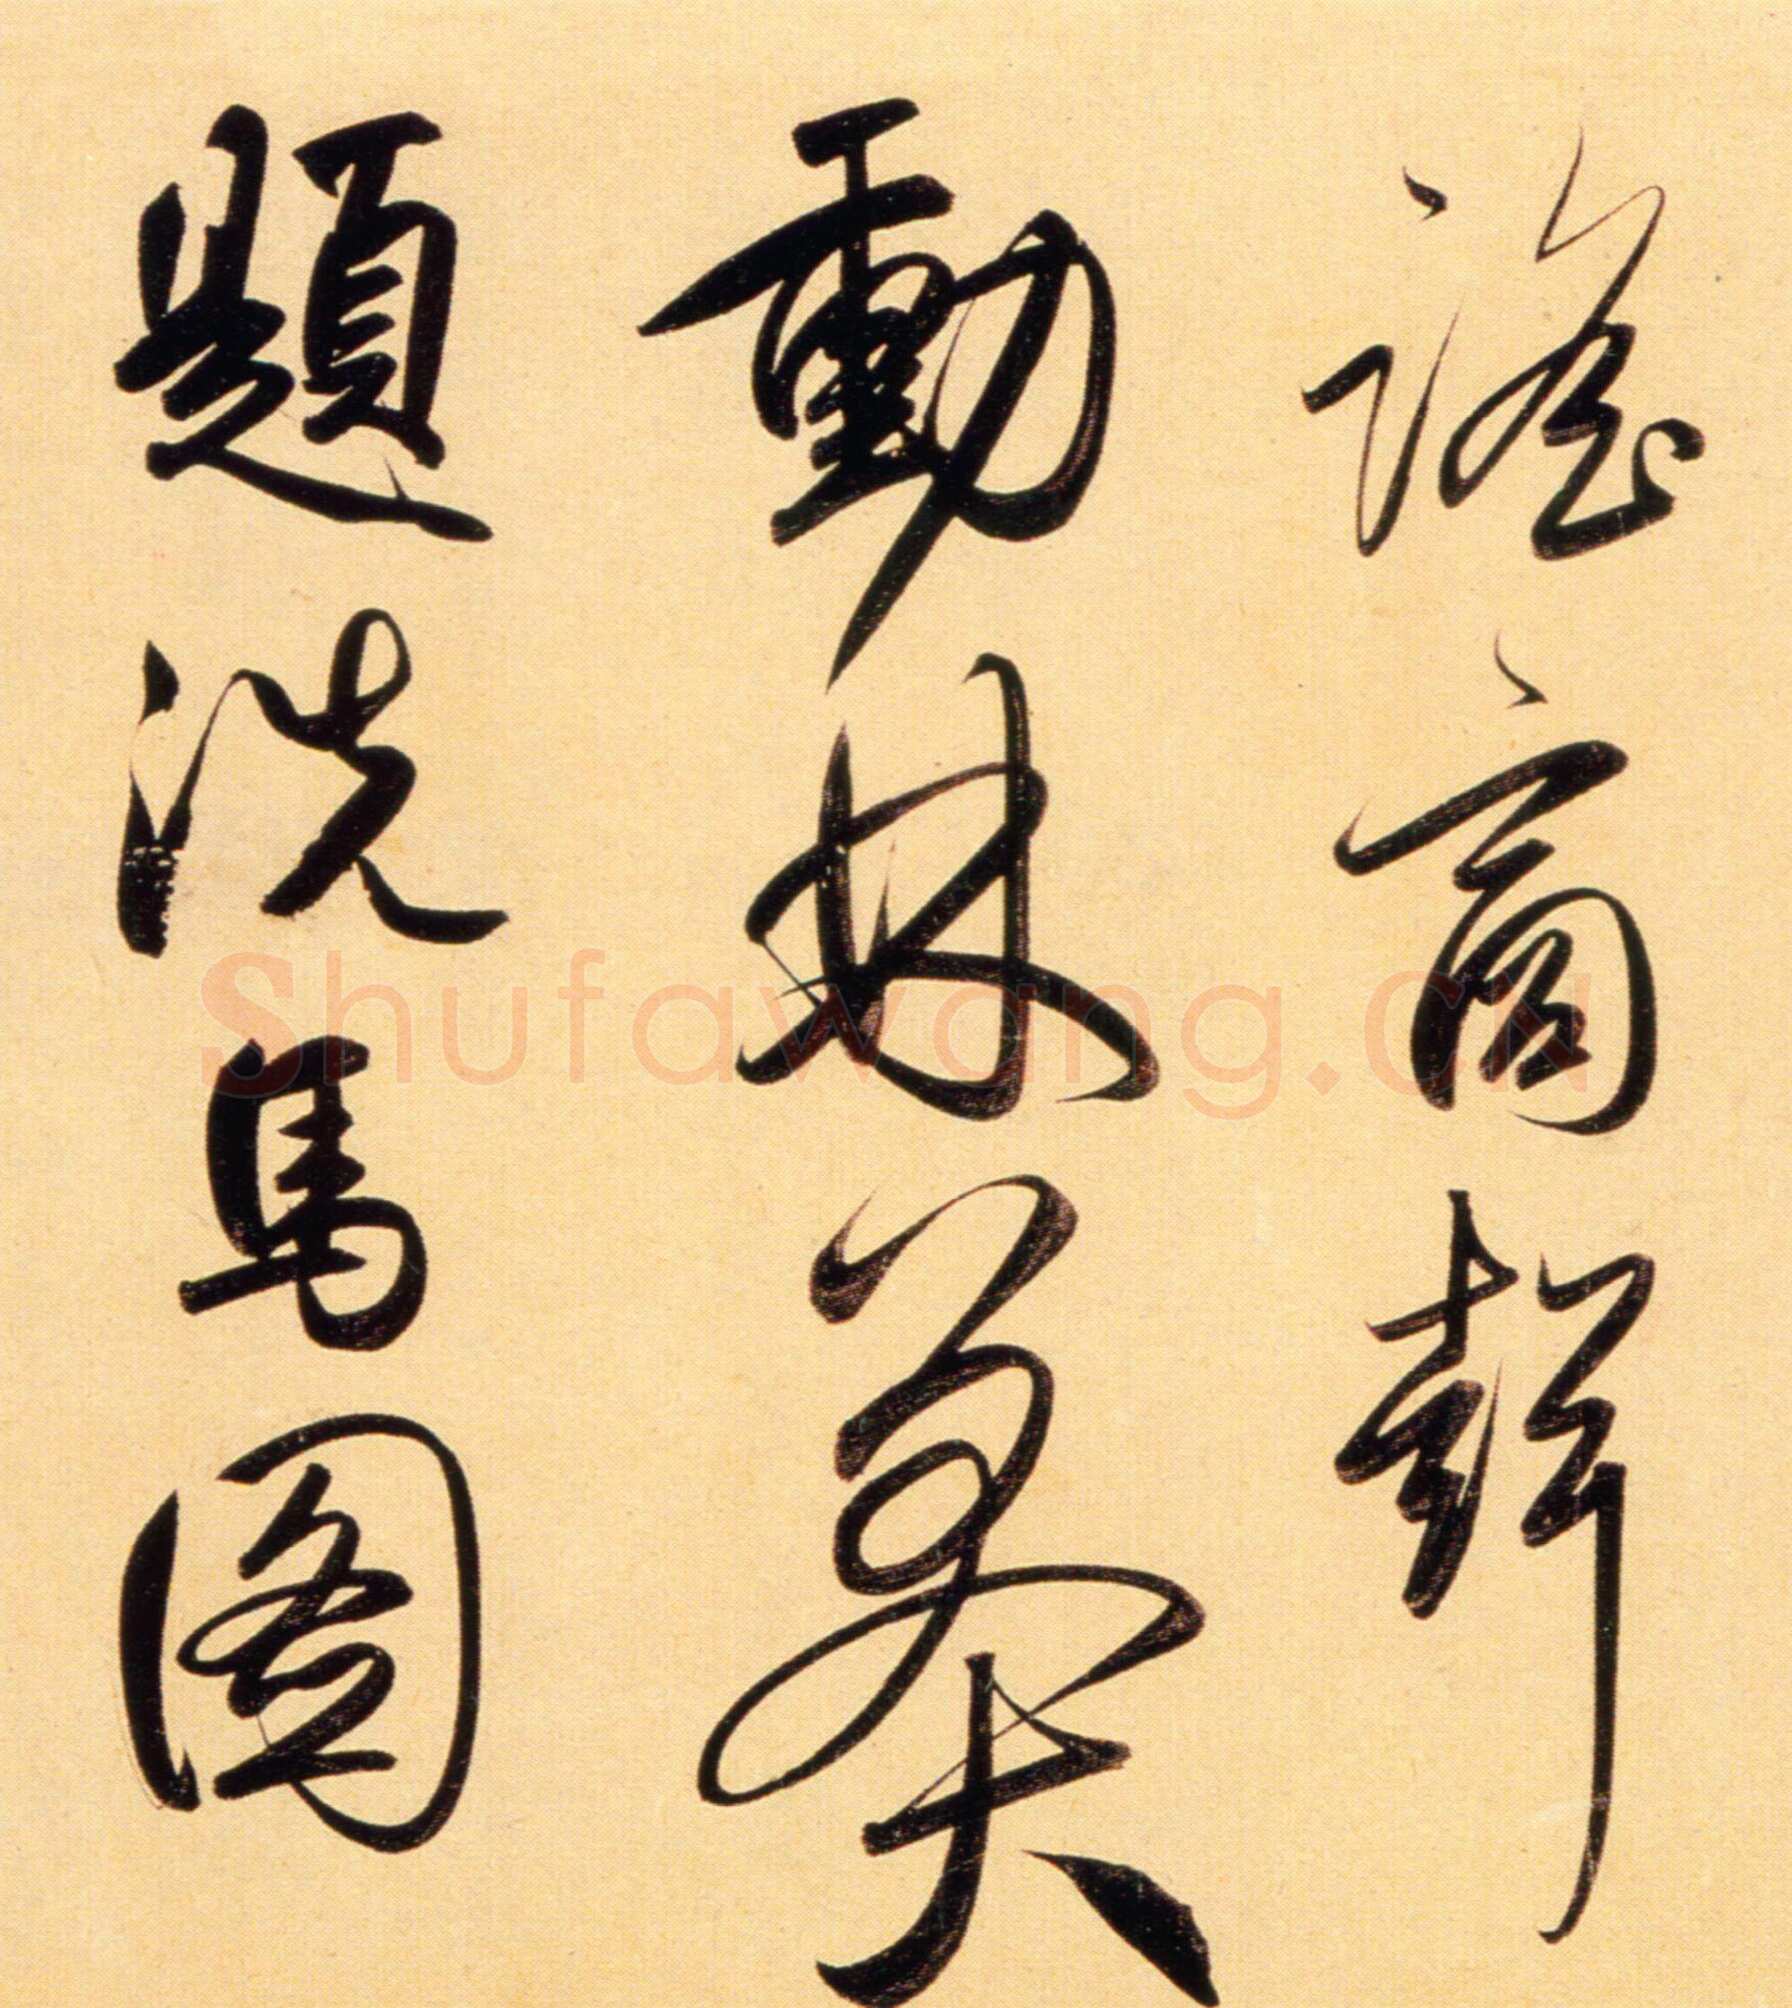 謠商聲
動林莽
題洗馬圖
Shufawang.CN